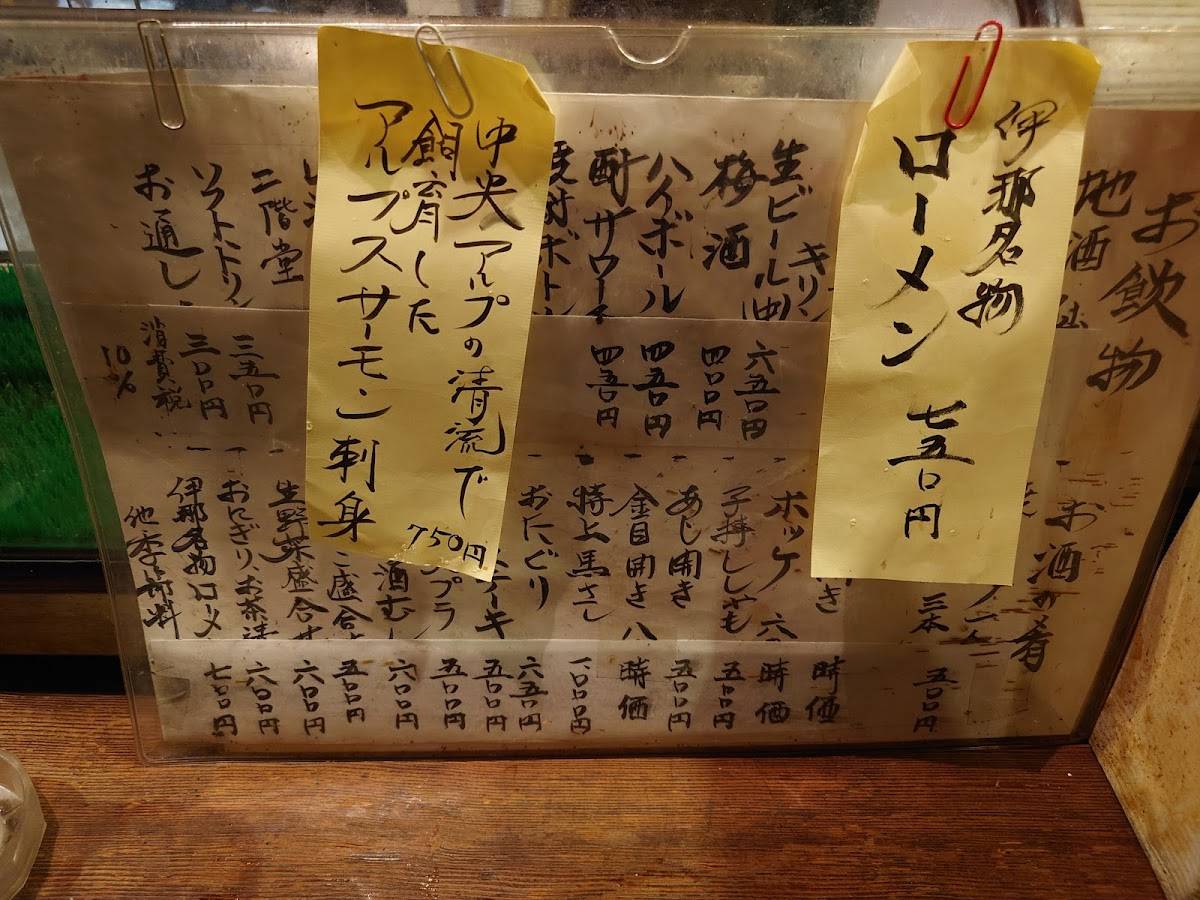 お飲物
地酒
伊那名物
ローメン 七五〇円
生ビール(中) キリン
六五〇円
梅酒
四〇〇円
ハイボール
四五〇円
酎サワー
四五〇円
中央アルプの清流で
飼育した
アルプスサーモン刺身
750円
二階堂
三五〇円
ソフトドリン
三〇〇円
お通し
消費税
10%
お酒の肴
三本
五〇〇円
時価
ホッケ
時価
子持ししゃも
五〇〇円
あじ開き
五〇〇円
金目開き
時価
特上馬さし
一〇〇〇円
おにどり
六五〇円
五〇〇円
五〇〇円
酒むし
六〇〇円
盛合せ
五〇〇円
生野菜盛合せ
六〇〇円
おにぎり、お茶漬
六〇〇円
伊那名物ローメ
七〇〇円
他季節料